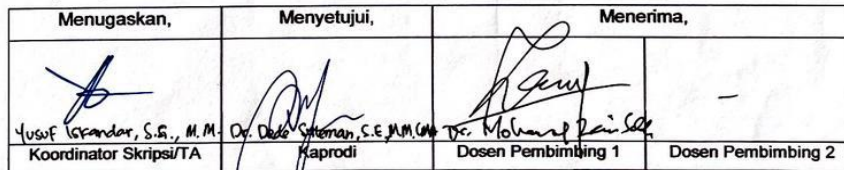 Menugaskan, Menyetujui, Menerima,
Yusuf Iskandar, S.E., M.M. Dr. Dede Suteman, S.E., M.M., Dr. Mohamad Zein Saleh -
Koordinator Skripsi/TA Kaprodi Dosen Pembimbing 1 Dosen Pembimbing 2